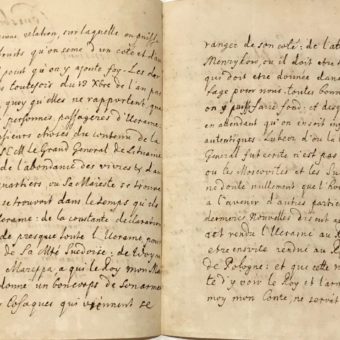 relation, sur laquelle on puisse
bruits qu'on seme d'un coté et d'au
point qu'on y ajoute foy. Les der
toutesfois du 18 Xbre de l'an pas
quoy qu'elles ne rapportent que
personnes passagéres d'Ucraine
sieurs choses du contenu de la
S.E.M. le Grand General de Lituanie
de l'abondance des vivres du
quartiers ou Sa Majesté se trouve
se trouvoit dans le temps qu'ils
Ucraine: de la constante declaration
de presque toute l'Ucraine pour
de Sa Mté Suedoise: de
Mazeppa, a qui le Roy mon
donné un bon corps de son armée
Cosaques qui viennent se
ranger de son coté: de l'at
Menzykow, ou il doit etre
qui doit etre donnée dans
tage pour nous. toutes bonnes
on faire fond. et
en attendant qu'on en soit in
autentiques. La peur d'ou la
General fut ecrite n'est pas
ou les Moscovites et les Su
ne doute nullement que l'hon
a l'avenir d'autres partic
dernieres Nouvelles disent au
rendu l'Ucraine au Ro
etre ensuite rendue au Ro
de Pologne: et que cette
te d'y voir le Roy et l'arm
moy mon Conte, ne servir